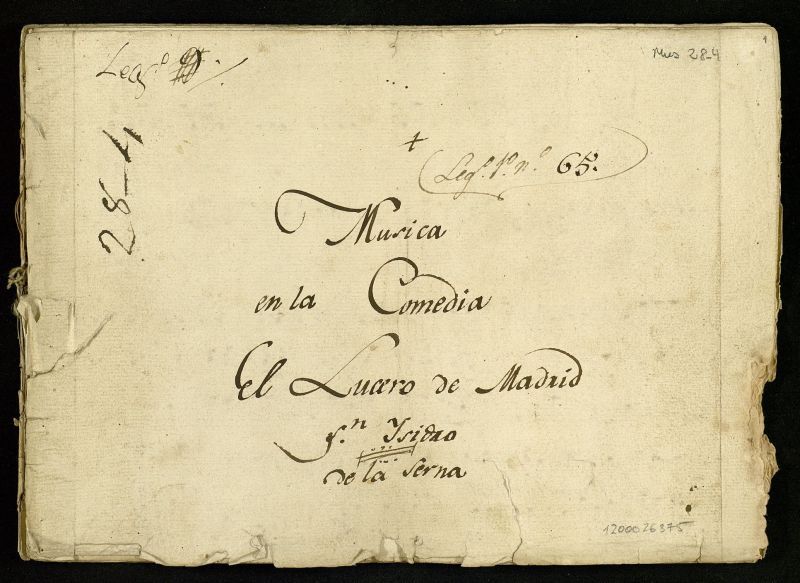 Leg.º
Mus 28-4
28-4
Leg.º 1º n.º 65.
Musica
en la Comedia
El Lucero de Madrid
S.n Ysidro
de la Serna
1200026375